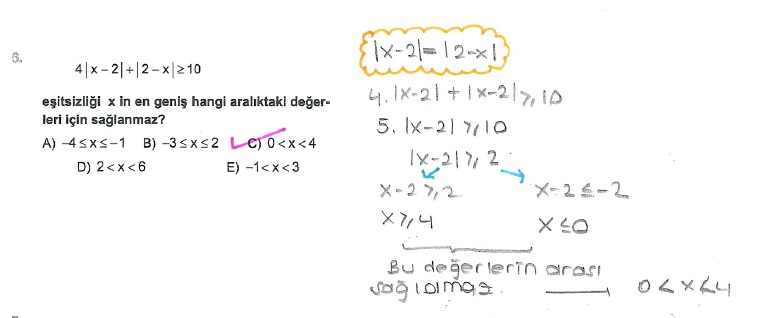 6.
4|x-2|+|2-x|≥10
eşitsizliği x in en geniş hangi aralıktaki değer-
leri için sağlanmaz?
A) -4≤x≤-1 B) -3≤x≤2 C) 0<x<4
D) 2<x<6 E) -1<x<3
|x-2|=|2-x|
4.|x-2|+|x-2|≥10
5.|x-2|≥10
|x-2|≥2
x-2≥2 x-2≤-2
x≥4 x≤0
Bu değerlerin arası
sağlamaz. 0<x<4